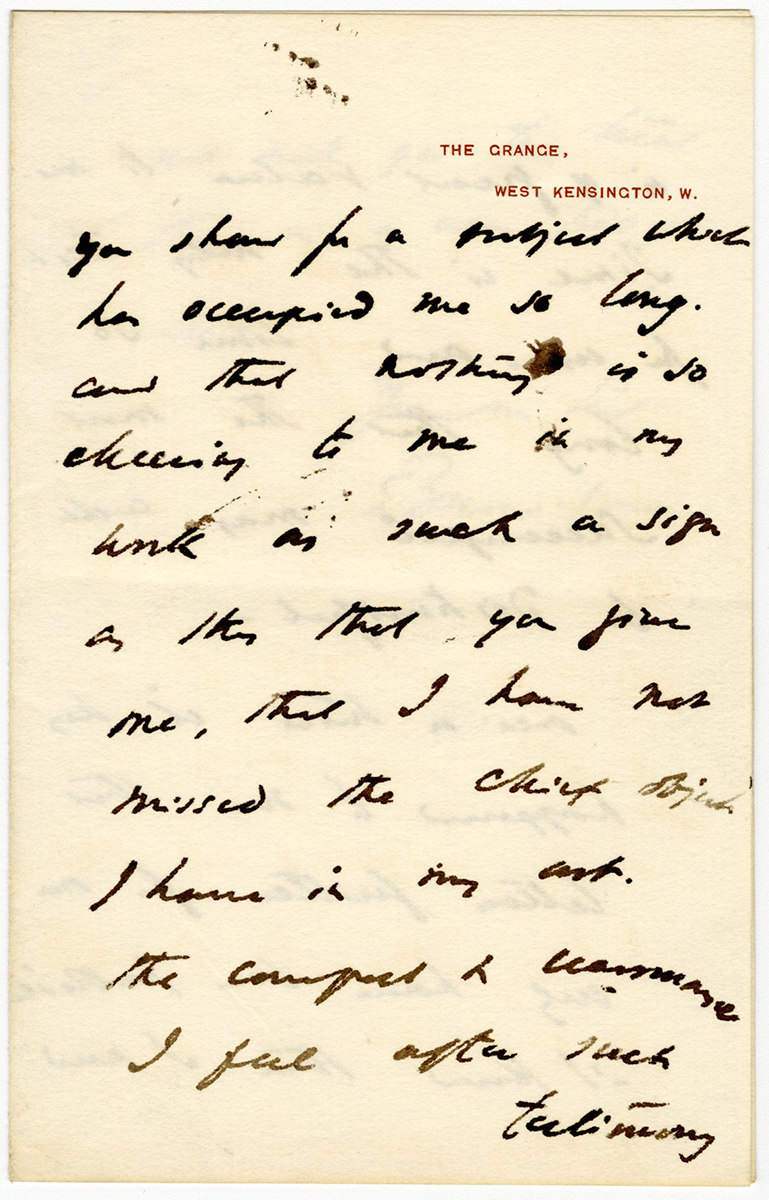 THE GRANGE,
WEST KENSINGTON, W.
you shew for a subject which
has occupied me so long.
and that nothing is so
cheering to me in my
work as such a sign
as this that you give
me, that I have not
missed the chief object
I have in my art.
the comfort &
I feel after such
testimony